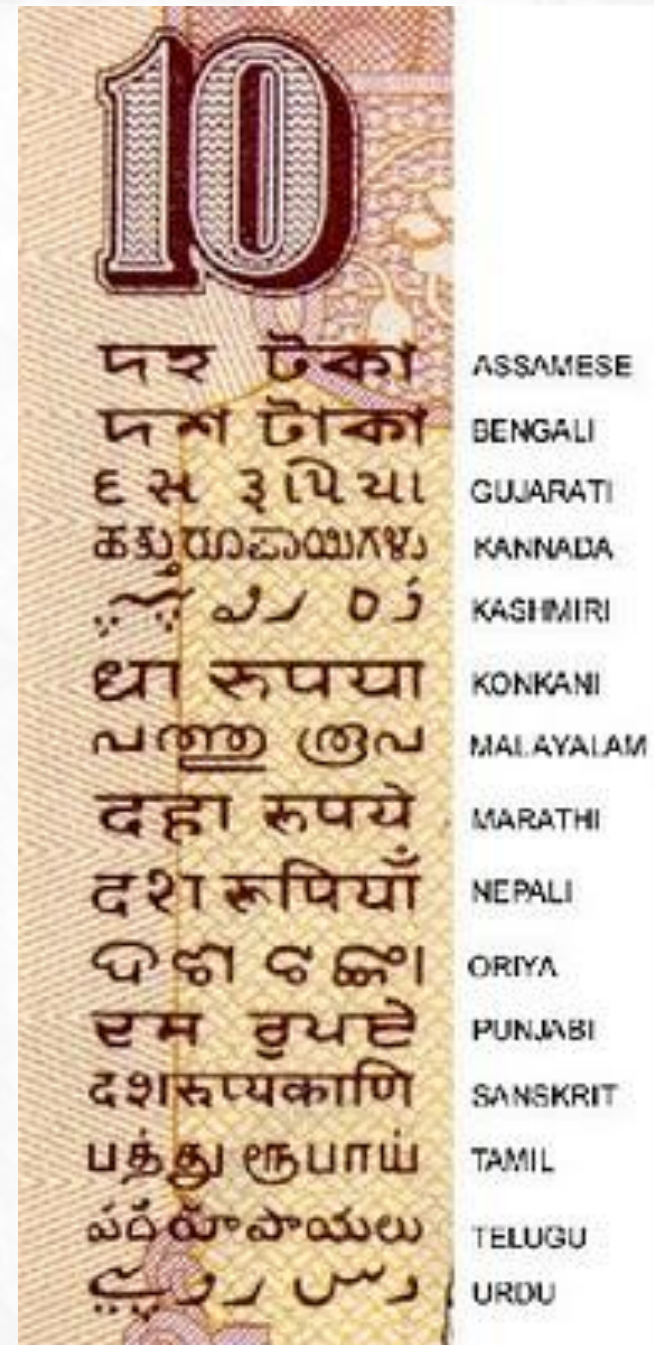 10
দহ টকা ASSAMESE
দশ টাকা BENGALI
દસ રૂપિયા GUJARATI
ಹತ್ತು ರೂಪಾಯಿಗಳು KANNADA
KASHMIRI
धा रुपया KONKANI
പത്തു രൂപ MALAYALAM
दहा रुपये MARATHI
दश रूपियाँ NEPALI
ଦଶ ଟଙ୍କା ORIYA
ਦਸ ਰੁਪਏ PUNJABI
दशरुप्यकाणि SANSKRIT
பத்து ரூபாய் TAMIL
పది రూపాయలు TELUGU
دس روپیے URDU